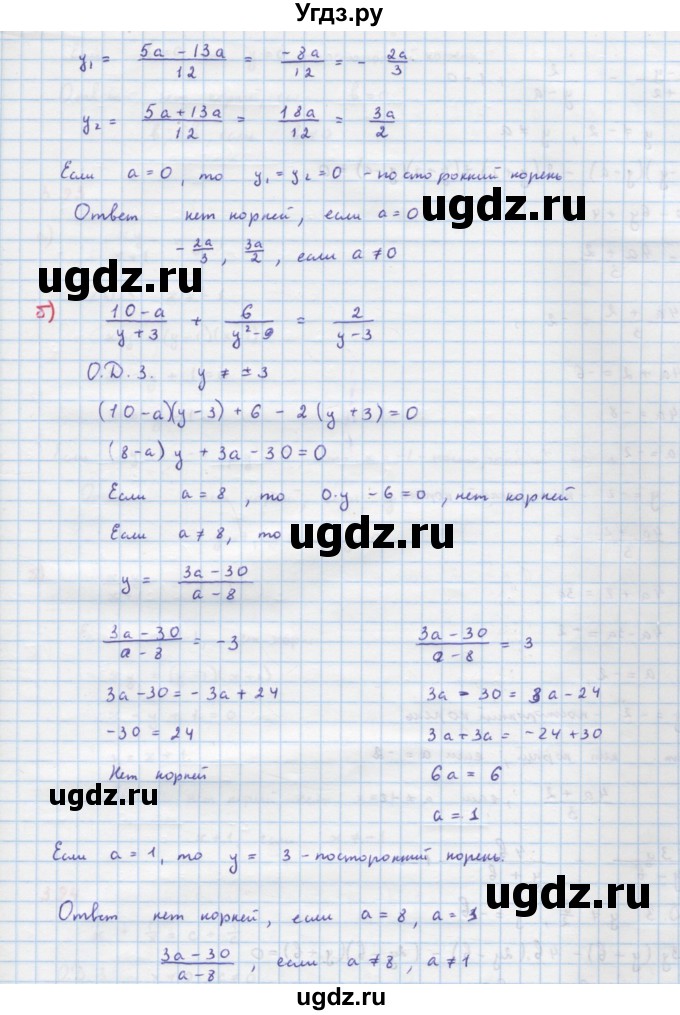 Угдз.ру
y₁ = (5a - 13a)/12 = (-8a)/12 = - 2a/3
y₂ = (5a + 13a)/12 = 18a/12 = 3a/2
Если a = 0, то y₁ = y₂ = 0 - посторонний корень
Ответ нет корней, если a = 0
ugdz.ru
- 2a/3, 3a/2, если a ≠ 0
ugdz.ru
б) (10 - a)/(y + 3) + 6/(y² - 9) = 2/(y - 3)
О.Д.З. y ≠ ± 3
(10 - a)(y - 3) + 6 - 2(y + 3) = 0
(8 - a) y + 3a - 30 = 0
Если a = 8, то 0·y - 6 = 0, нет корней
Если a ≠ 8, то
ugdz.ru
y = (3a - 30)/(a - 8)
(3a - 30)/(a - 8) = -3
3a - 30 = - 3a + 24
-30 = 24
Нет корней
(3a - 30)/(a - 8) = 3
3a - 30 = 3a - 24
3a + 3a = -24 + 30
6a = 6
a = 1
ugdz.ru
Если a = 1, то y = 3 - посторонний корень.
ugdz.ru
Ответ нет корней, если a = 8, a = 1
(3a - 30)/(a - 8), если a ≠ 8, a ≠ 1
ugdz.ru